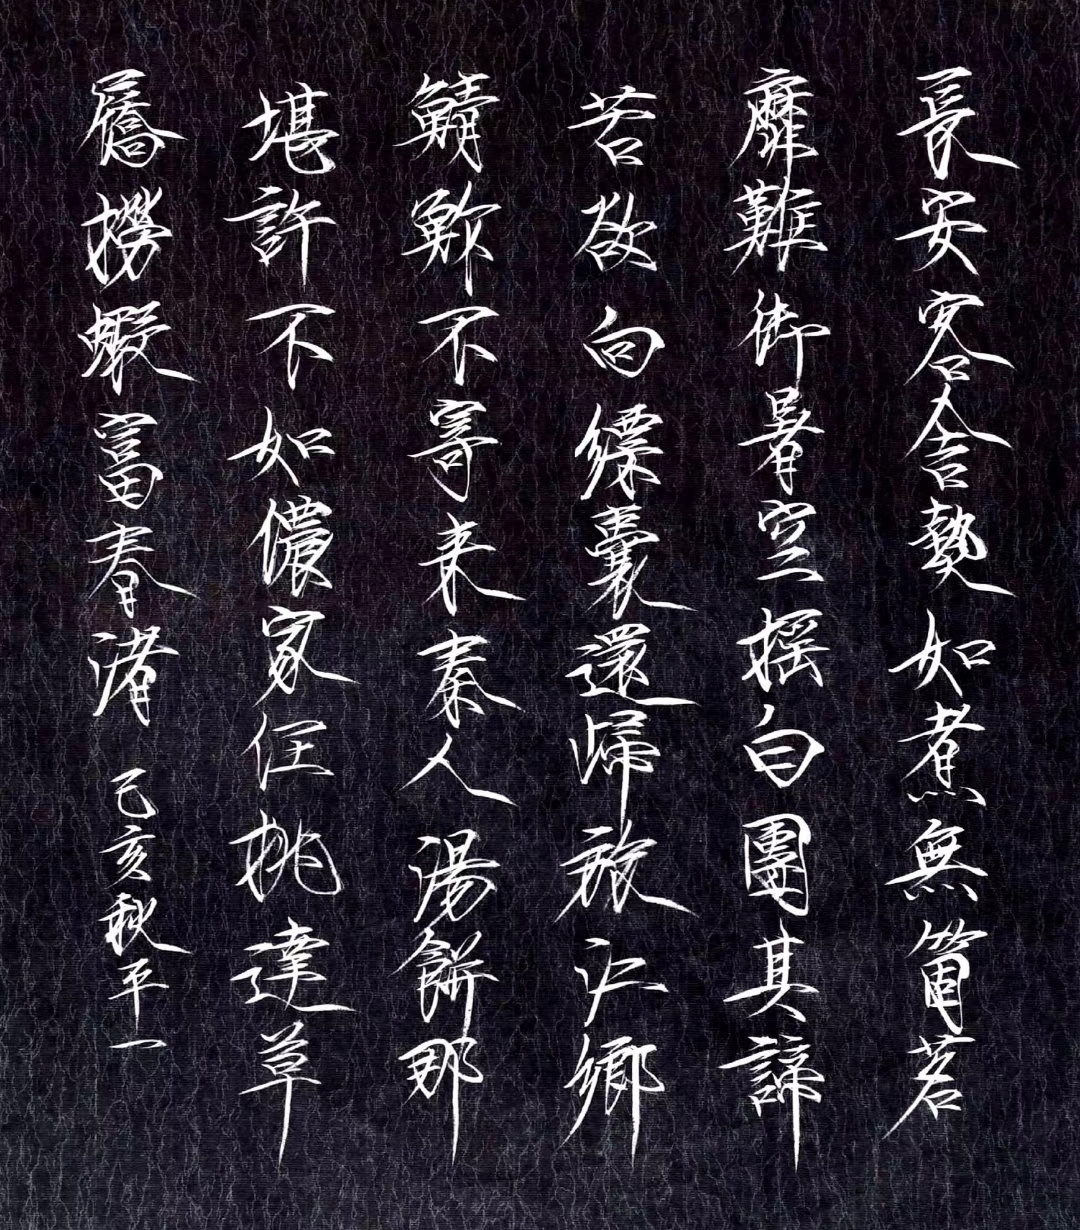 長安客舍熱如煮無箇茗
靡難御暑空搖白團其諦
苦欲向縹囊還歸旅江鄉
鯖鮓不寄來秦人湯餅那
堪許不如儂家任挑達草
屩撈蝦富春渚 己亥秋平一